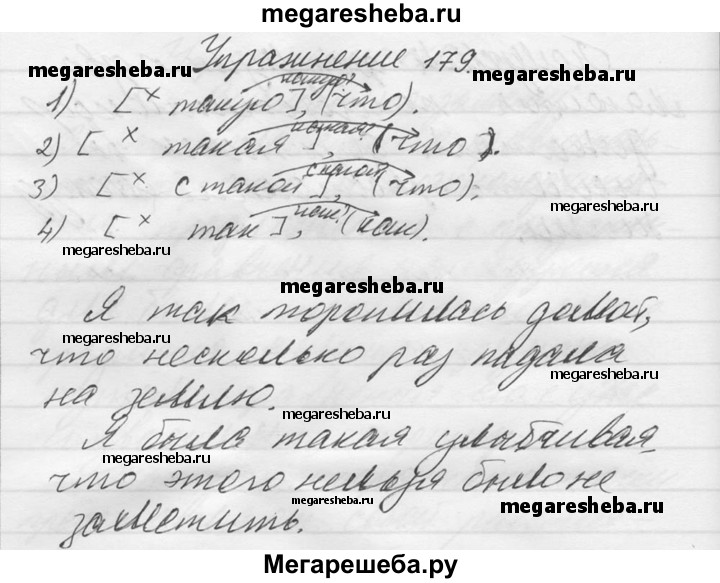 megaresheba.ru
Упражнение 179.
megaresheba.ru megaresheba.ru
какую?
1) [ х такую ], (что).
какая?
2) [ х такая ], (что).
с какой?
3) [ х с такой ], (что).
megaresheba.ru
как?
4) [ х так ], (как).
megaresheba.ru
megaresheba.ru
Я так торопилась домой,
megaresheba.ru
что несколько раз падала
megaresheba.ru
на землю.
megaresheba.ru
Я была такая улыбчивая,
megaresheba.ru
что этого нельзя было не
megaresheba.ru megaresheba.ru
заметить.
Мегарешеба.ру